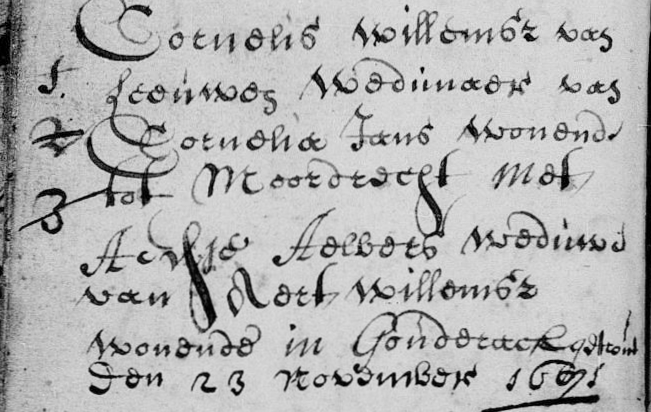 Cornelis Willemsz van
1. Leeuwen Wedunaer van
2 Cornelia Jans wonende
3 tot Moordrecht Met
Aeltje Aelberts weduwe
van Aert Willemsz
wonende in Gouderack getrout
den 23 November 1671